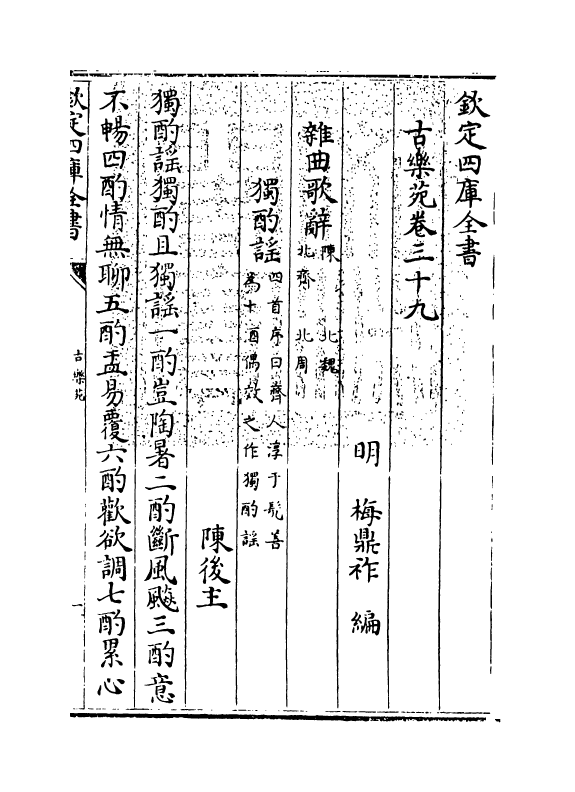 欽定四庫全書
古樂苑卷三十九
明 梅鼎祚 編
雜曲歌辭陳 北魏
北齊 北周
獨酌謠四首序曰齊人淳于髡善
為十酒偶效之作獨酌謠
陳後主
獨酌謠獨酌且獨謠一酌豈陶暑二酌斷風飈三酌意
不暢四酌情無聊五酌盂易覆六酌歡欲調七酌累心
欽定四庫全書
古樂苑
一